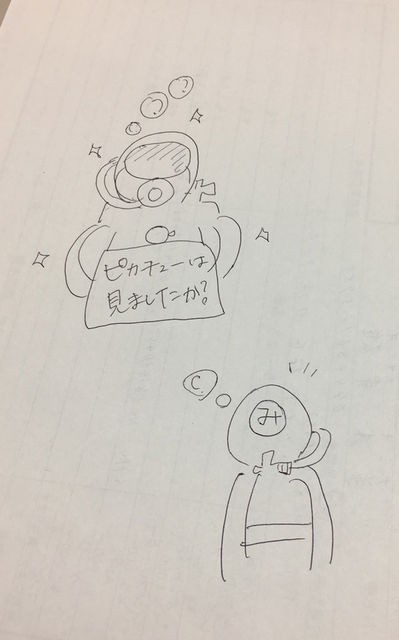 ピカチューは
見ましたか?
み